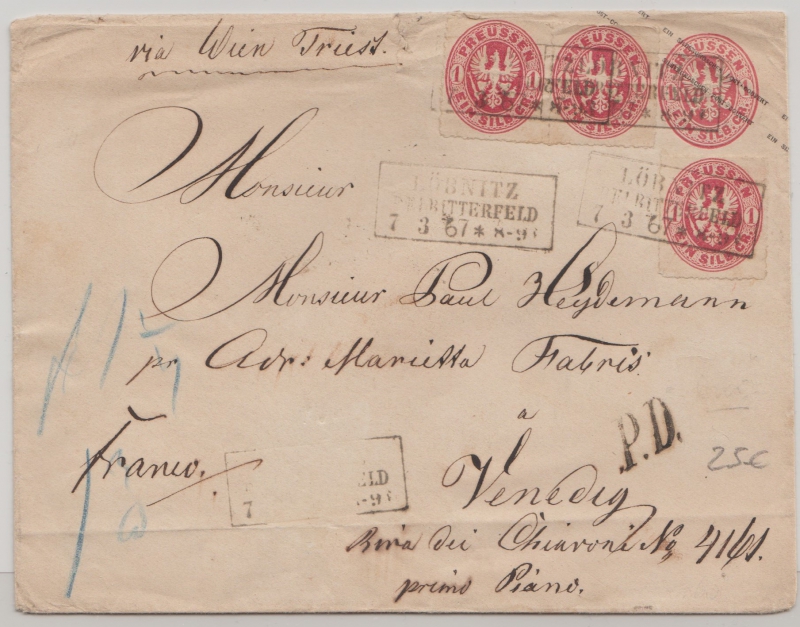 via Wien Triest.
PREUSSEN
1 1
EIN SILB.GR.
PREUSSEN
1
EIN SILB.GR.
PREUSSEN
EIN SILB.GR.
PREUSSEN
1 1
EIN SILB.GR.
LÖBNITZ
BEI BITTERFELD
7 3 67 * 8-9 V
LÖBNITZ
BEI BITTERFELD
7 3 67 *
Monsieur
Monsieur Paul Heydemann
pr Adr: Marietta Fabris
à
Franco.
P.D.
25€
ELD
7 8-9 V
Venedig
Riva dei Chiavoni No 4161.
primo Piano.